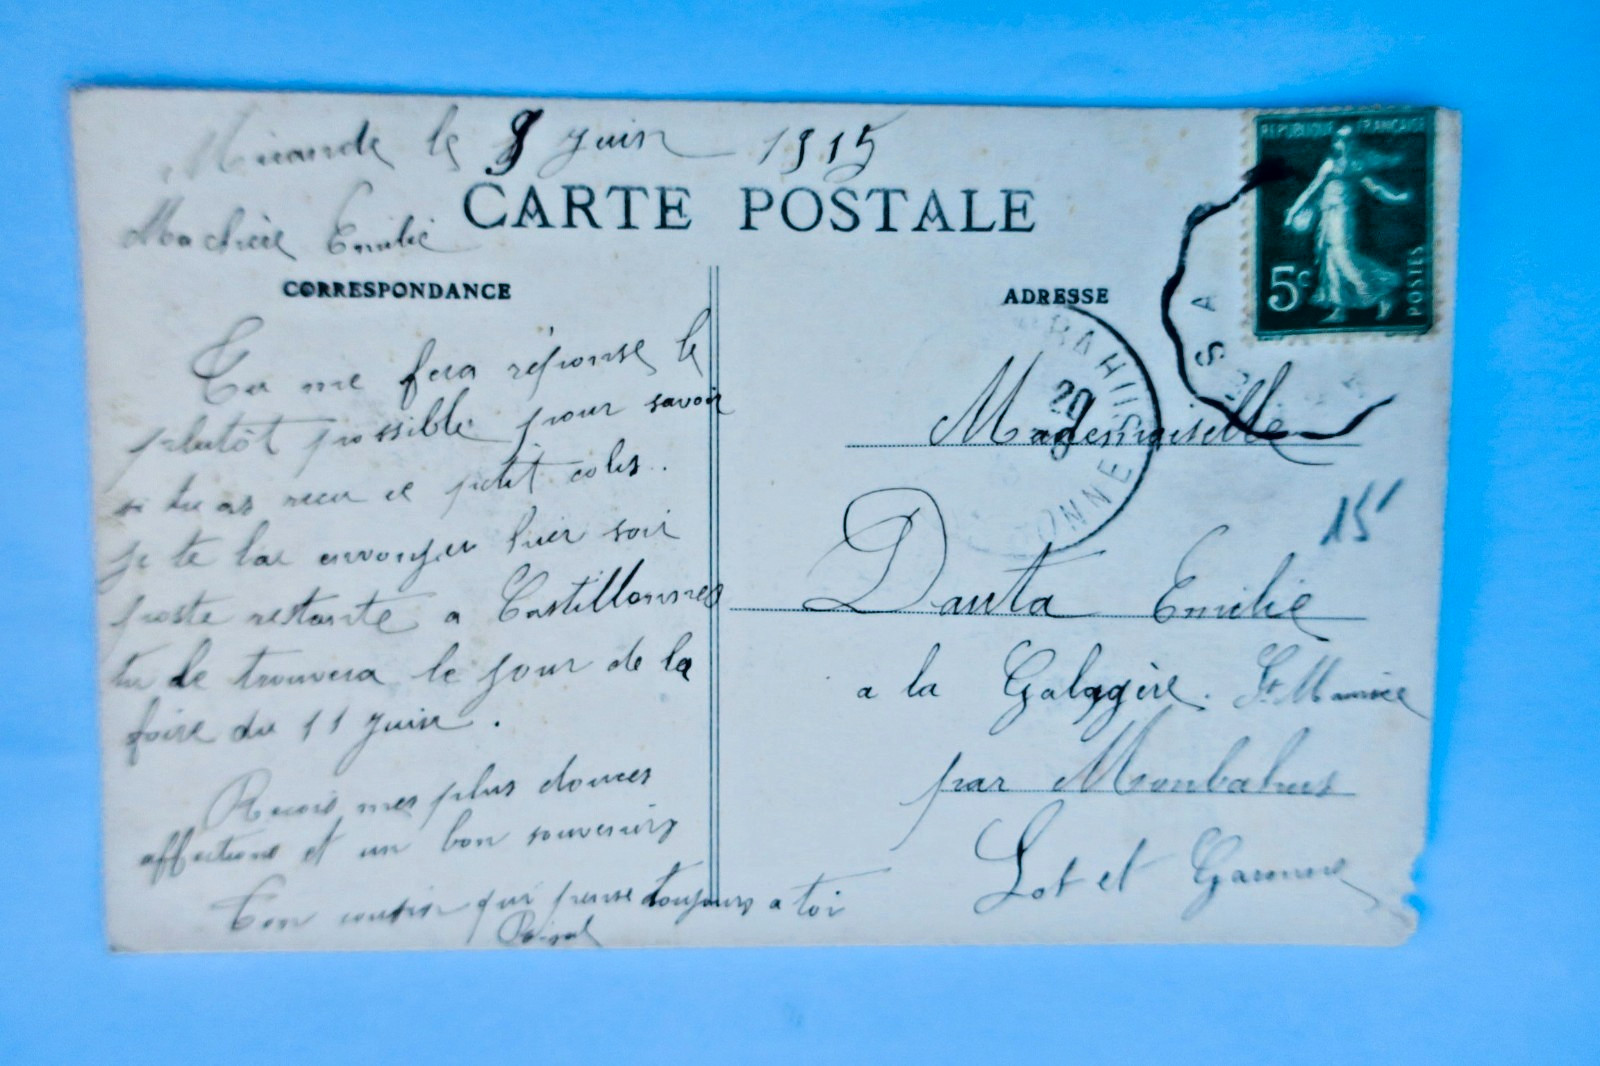 Mirande le 8 Juin 1915
CARTE POSTALE
Ma chère Emilie
CORRESPONDANCE
Tu me fera réponse le
plutôt possible pour savoir
si tu as recu ce petit colis.
je te lai envoyer hier soir
poste restante a Castillonnes
tu le trouvera le jour de la
foire du 11 Juin.
Recois mes plus douces
affections et un bon souvenir
Ton cousin qui pense toujours a toi
ADRESSE
REPUBLIQUE FRANÇAISE
5c
POSTES
20
Mademoiselle
15
Dauta Emilie
a la Galagère. St Maurice
par Monbahus
Lot et Garonne